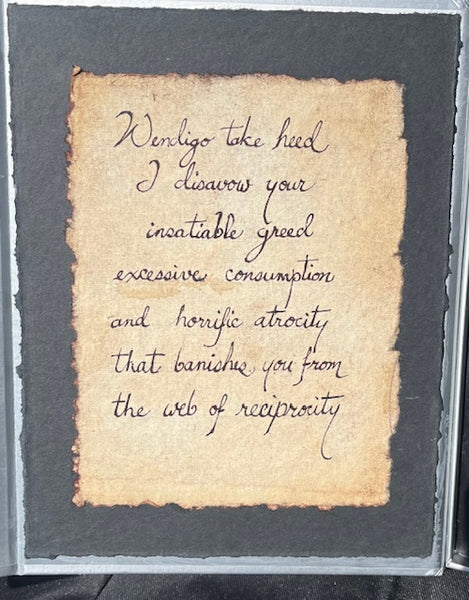 Wendigo take heed
I disavow your
insatiable greed
excessive consumption
and horrific atrocity
that banishes you from
the web of reciprocity